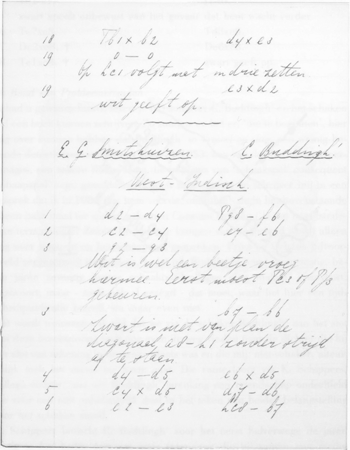 18 Tb1 x b2 d4 x e3
19 0 – 0
Op Lc3 volgt mat in drie zetten
19 e3 x d2
wit geeft op.
E. G. Smitshuizen C. Buddingh'
West-Indisch
1 d2 – d4 Pg8 – f6
2 c2 – c4 e7 – e6
3 g2 – g3
Wit is wel een beetje vroeg
hiermee. Eerst moest Pc3 of Pf3
gebeuren.
3 b7 – b6
Zwart is niet van plan de
diagonaal a8 – h1 zonder strijd
af te staan
4 d4 – d5 e6 x d5
5 c4 x d5 d7 – d6
6 e2 – e3 Lc8 – b7